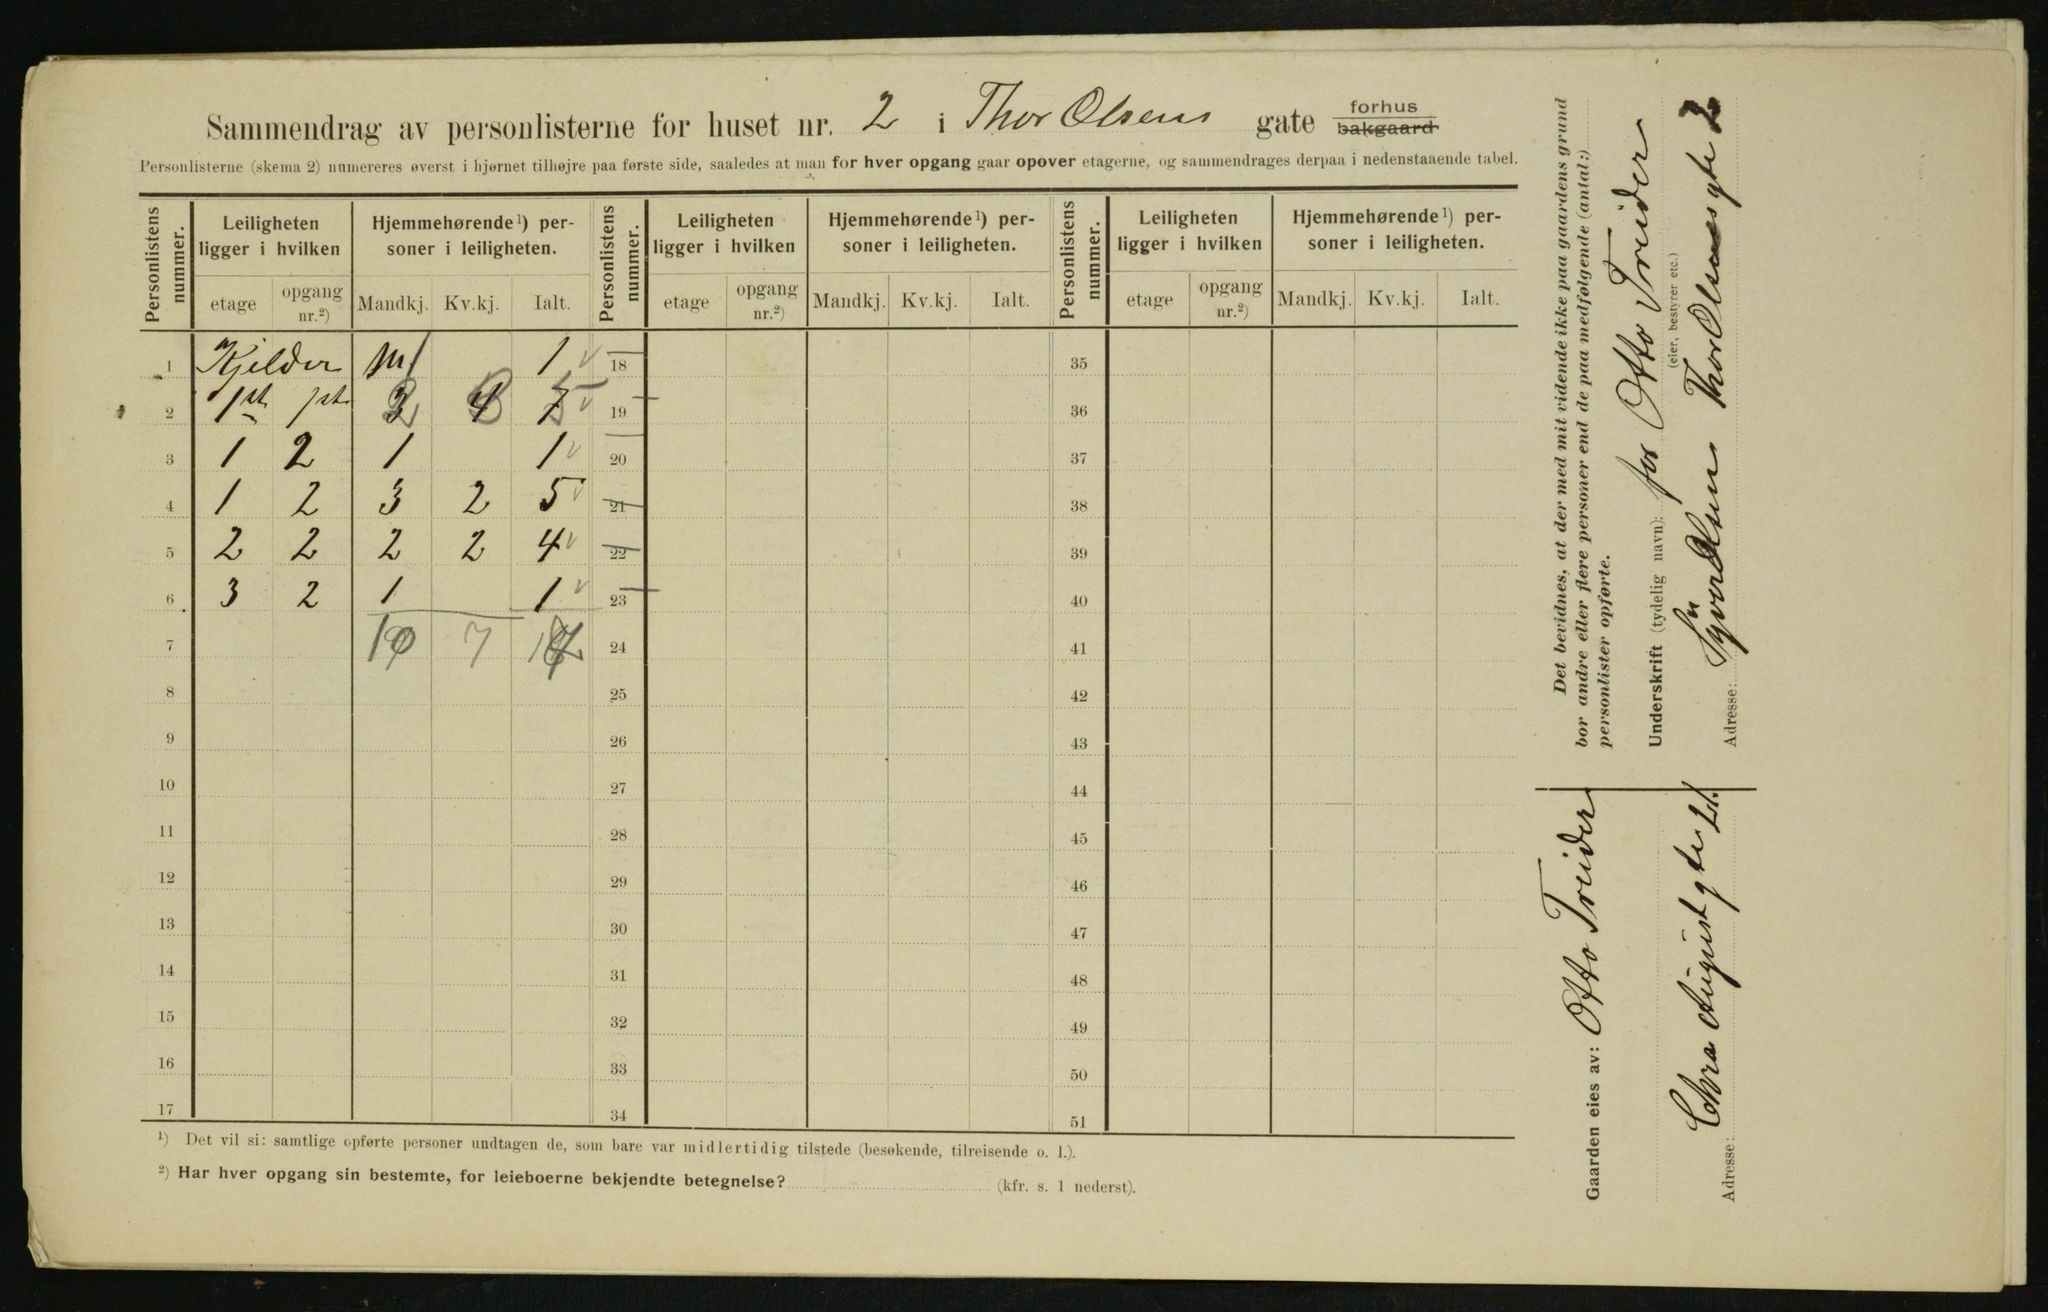 Sammendrag av personlisterne for huset nr. 2 i Thor Olsens gate forhus bakgaard
Personlisterne (skema 2) numereres øverst i hjørnet tilhøjre paa første side, saaledes at man for hver opgang gaar opover etagerne, og sammendrages derpaa i nedenstaaende tabel.
Personlistens nummer. Leiligheten ligger i hvilken Hjemmehørende ¹) personer i leiligheten. Personlistens nummer. Leiligheten ligger i hvilken Hjemmehørende ¹) personer i leiligheten. Personlistens nummer. Leiligheten ligger i hvilken Hjemmehørende ¹) personer i leiligheten.
etage opgang nr.²) Mandkj. Kv.kj. Ialt. etage opgang nr.²) Mandkj. Kv.kj. Ialt. etage opgang nr.²) Mandkj. Kv.kj. Ialt.
1 Kjelder 1 1 18 35
2 1st 1st 3 4 7 19 36
3 1 2 1 1 20 37
4 1 2 3 2 5 21 38
5 2 2 2 2 4 22 39
6 3 2 1 1 23 40
7 7 24 41
8 25 42
9 26 43
10 27 44
11 28 45
12 29 46
13 30 47
14 31 48
15 32 49
16 33 50
17 34 51
¹) Det vil si: samtlige opførte personer undtagen de, som bare var midlertidig tilstede (besøkende, tilreisende o. l.).
²) Har hver opgang sin bestemte, for leieboerne bekjendte betegnelse? (kfr. s. 1 nederst).
Det bevidnes, at der med mit vidende ikke paa gaardens grund
bor andre eller flere personer end de paa medfølgende (antal:)
personlister opførte.
Underskrift (tydelig navn): for Otto Treider
(eier, bestyrer etc.)
Adresse: Olsen Thor Olsensgte 2
Gaarden eies av: Otto Treider
Adresse: Chra Augustgte 21.